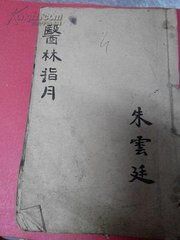 醫林指月
朱雲廷